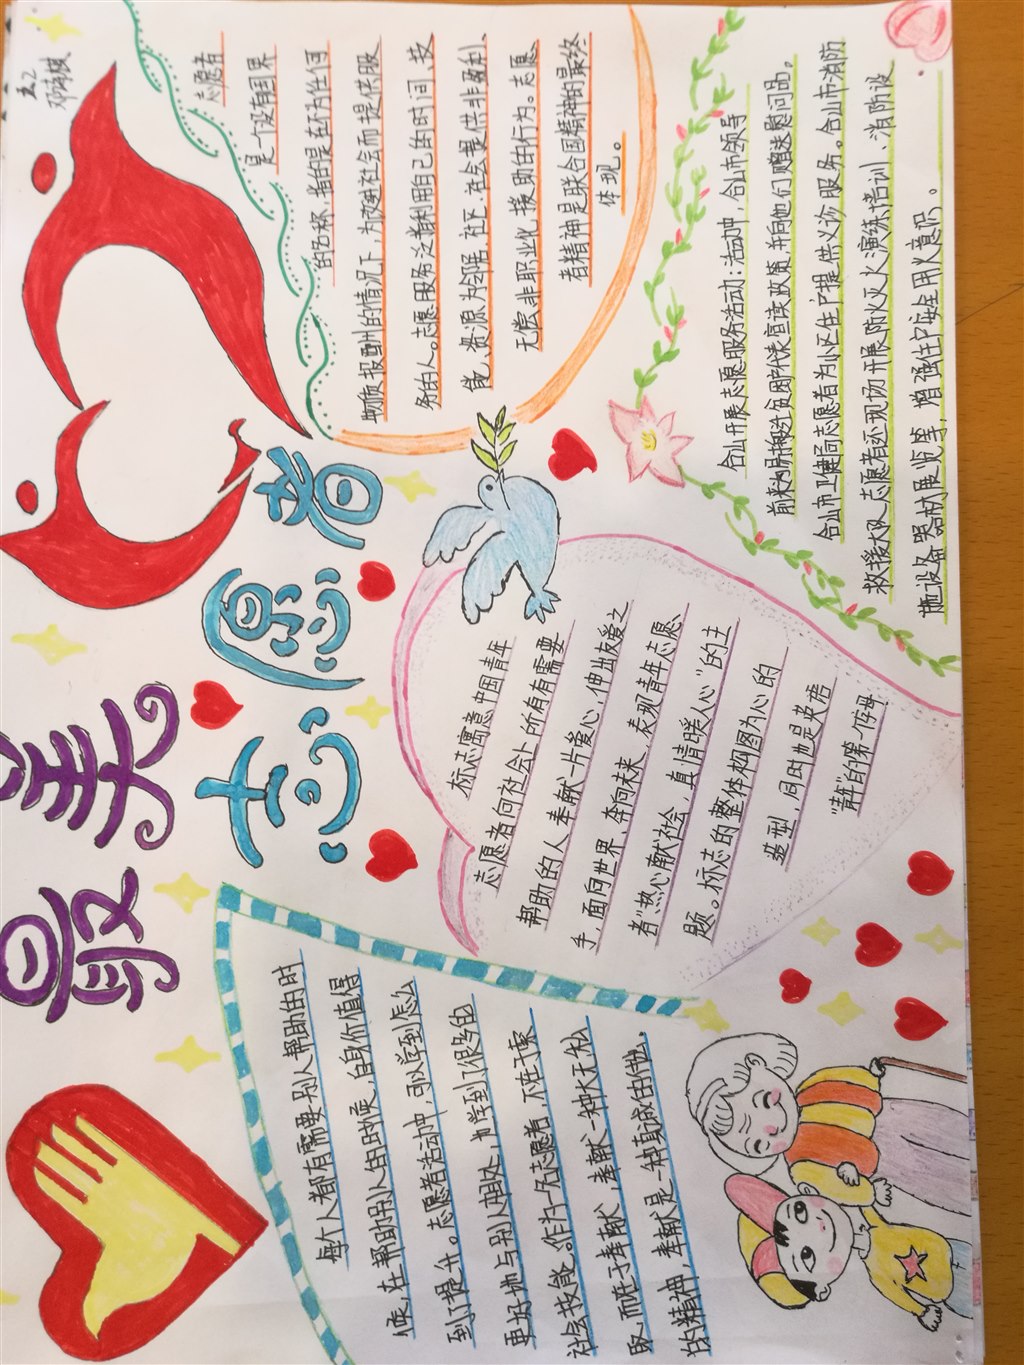 最美
志愿者
五.2
每个人都有需要别人帮助的时
候,在帮助别人的时候,自身价值得
到了提升。志愿者活动中,可以学到怎么
更好地与别人相处,也学到了很多的
社会技能。作为一名志愿者,不在于索
取,而在于奉献,奉献一种大无私
的精神,奉献是一种真诚的付出。
标志寓意中国青年
志愿者向社会上所有有需要
帮助的人奉献一片爱心,伸出友爱之
手,面向世界,奔向未来,表现青年志愿
者"热心献社会,真情暖人心"的主
题。标志的整体构图为心的
造型,同时也是英语
"青年"的第一字母
志愿者
是一个没有国界
的名称,指的是在不为任何
物质报酬的情况下,为改进社会而提供服
务的人。志愿服务泛指利用自己的时间,技
能、资源为邻居、社区、社会提供非盈利、
无偿、非职业化,援助的行为。志愿
者精神是联合国精神的最终
体现。
合山开展志愿服务活动:活动中,合山市领导
前来为易地扶贫困户代表宣读政策并向他们赠送慰问品。
合山市卫健局志愿者为小区住户提供义诊服务。合山市消防
救援大队志愿者还现场开展防火灭火演练培训、消防设
施设备器材展览等,增强住户安全用火意识。